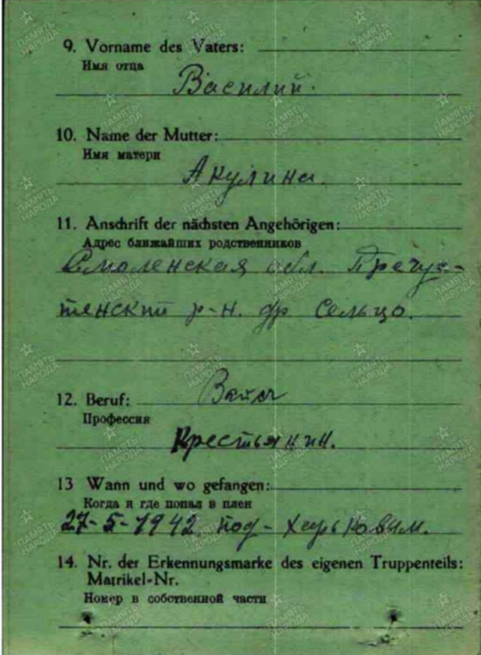 9. Vorname des Vaters:
Имя отца
Василий.
10. Name der Mutter:
Имя матери
Акулина.
11. Anschrift der nächsten Angehörigen:
Адрес ближайших родственников
Смоленская обл. Пречис-
тенский р-н. др Сельцо.
12. Beruf:
Профессия
Крестьянин.
13 Wann und wo gefangen:
Когда и где попал в плен
27-5-1942 под-Харьковым.
14. Nr. der Erkennungsmarke des eigenen Truppenteils:
Matrikel-Nr.
Номер в собственной части
ПАМЯТЬ НАРОДА